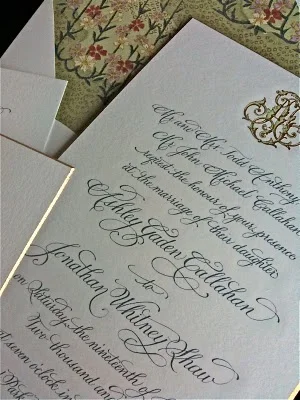 Mr. and Mrs. Todd Anthony
Mr. John Michael Callahan
request the honour of your presence
at the marriage of their daughter
Ashley Callahan
to
Jonathan Whitney Shaw
on Saturday, the nineteenth of
Two thousand and
at seven o'clock in
Park